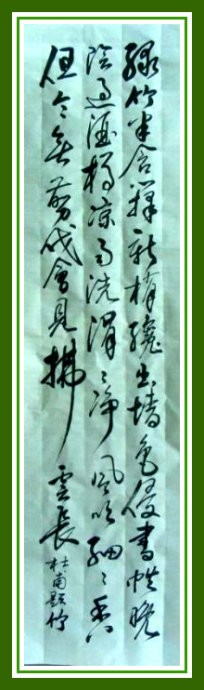 綠竹半含籜新梢纔出墻色侵書帙晚
陰過酒樽涼雨洗涓々淨風吹細々香
但令無剪伐會見拂雲長杜甫題竹